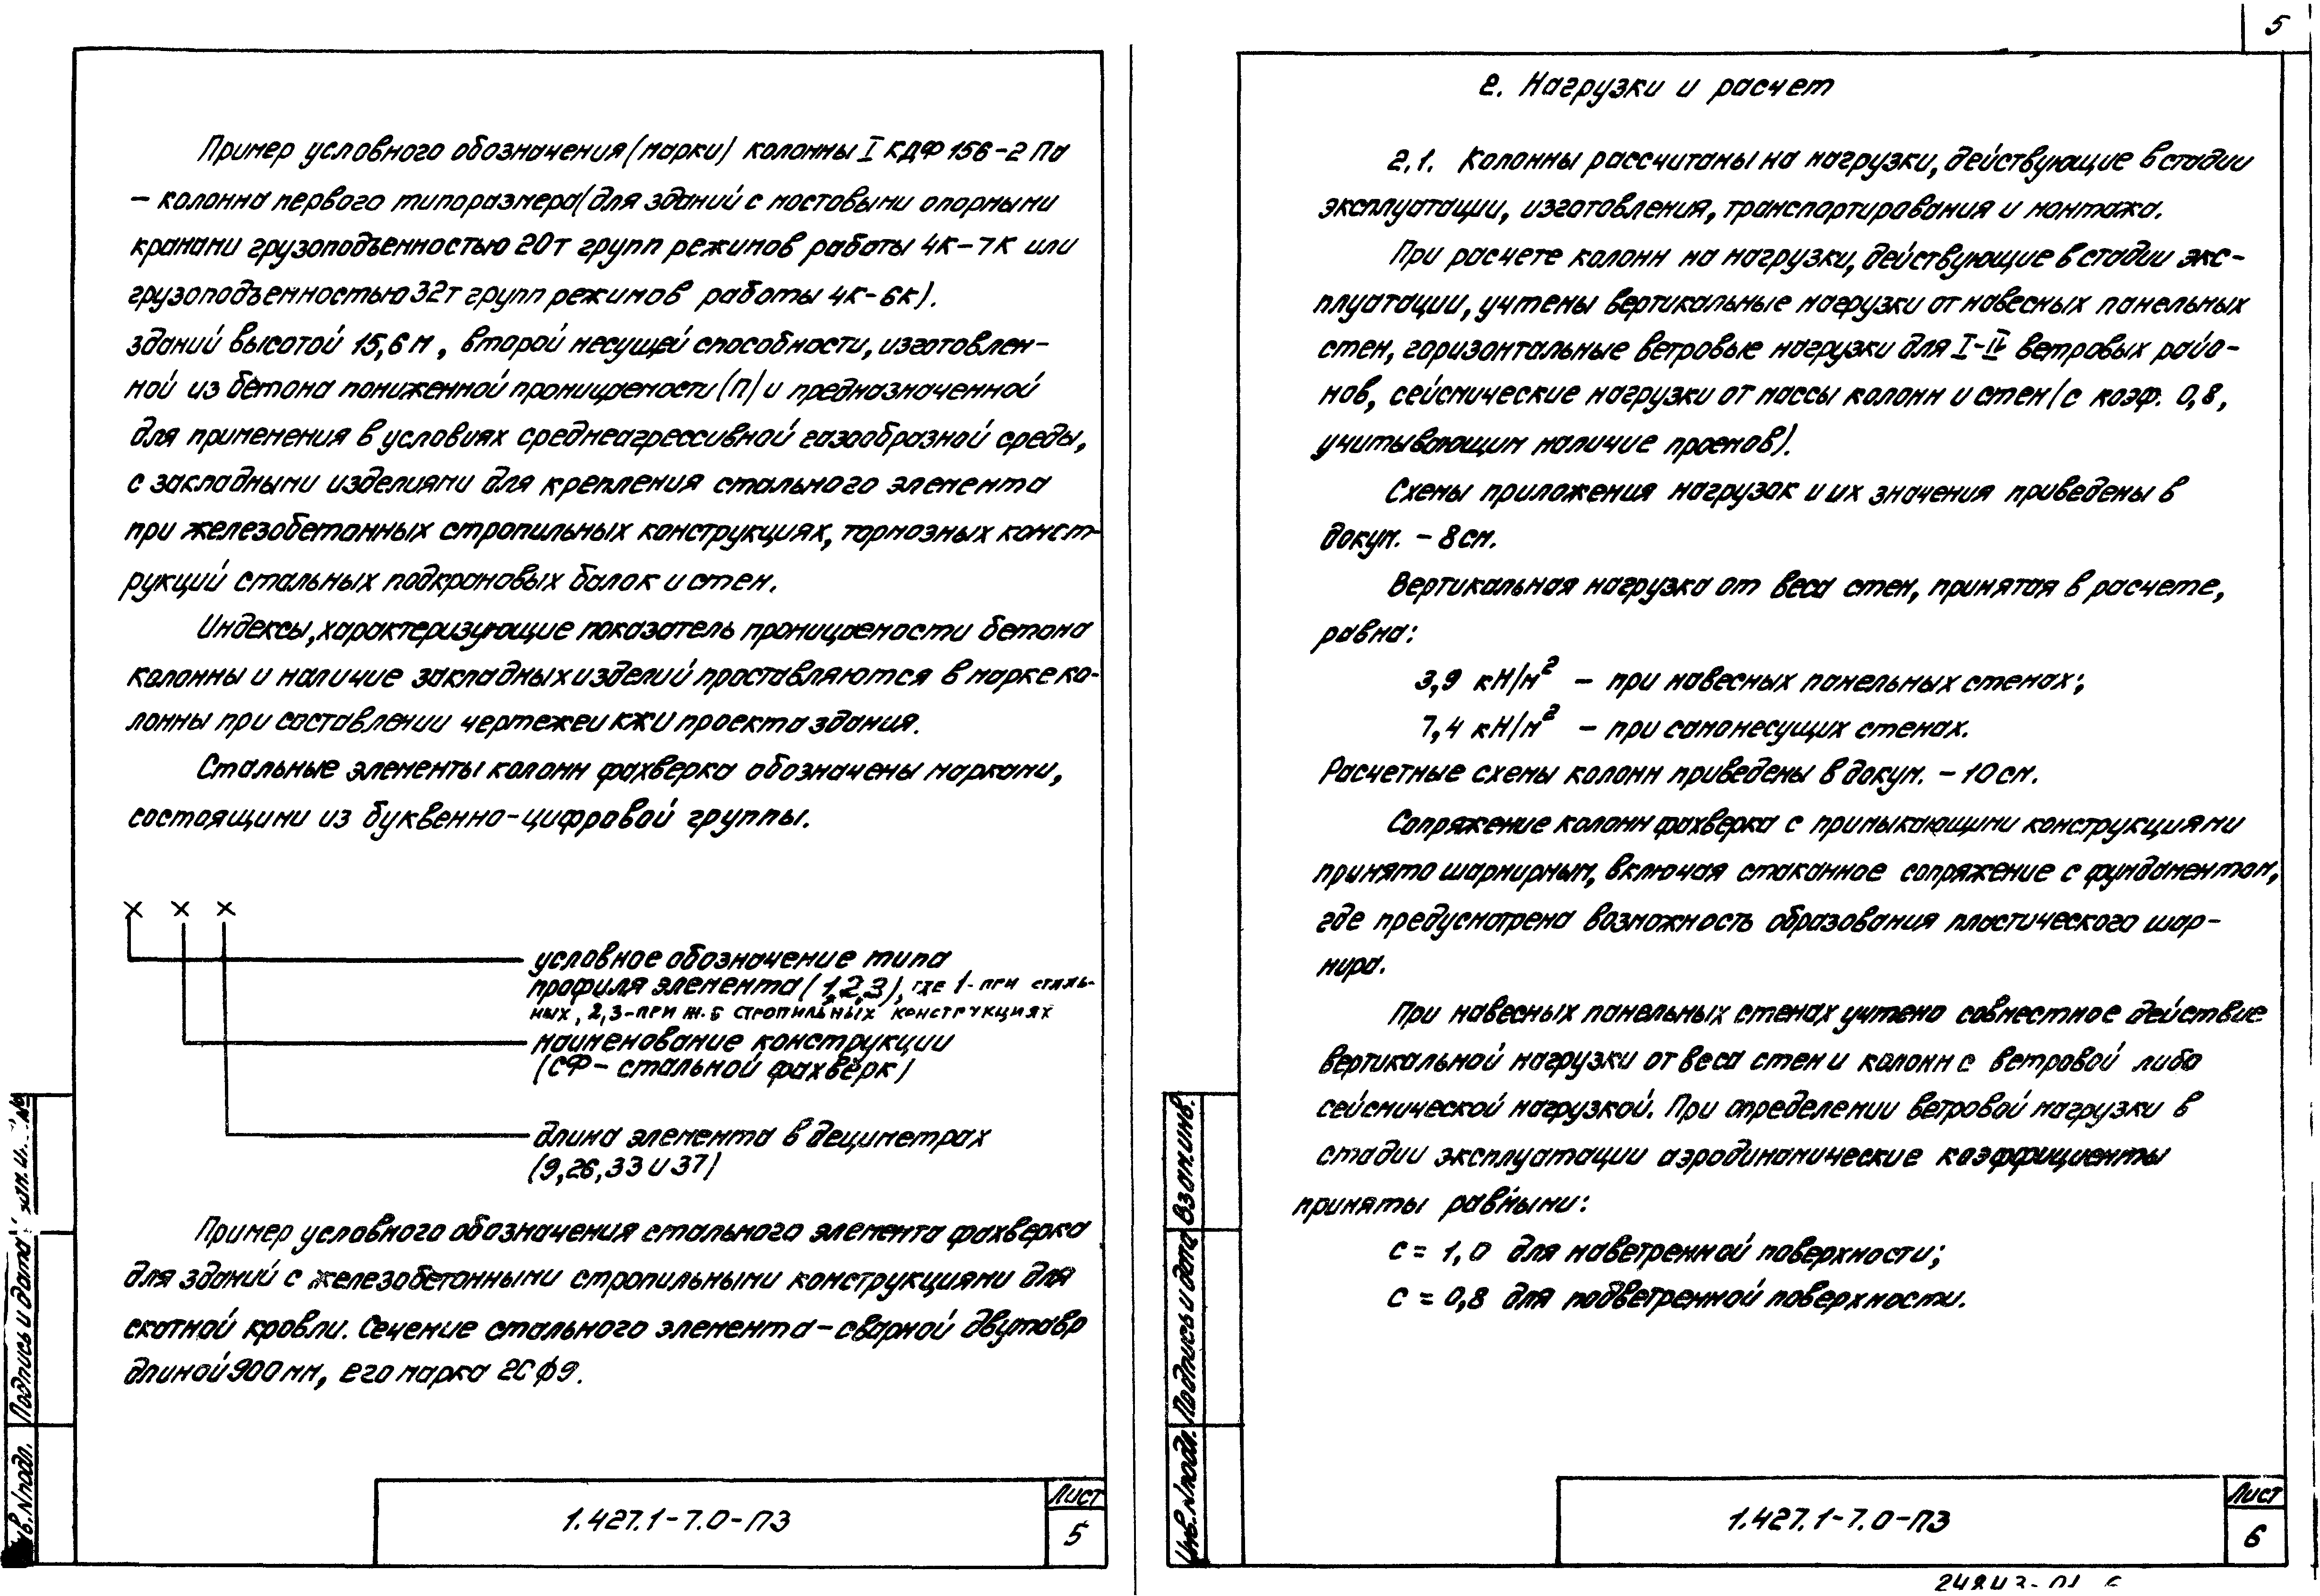 Пример условного обозначения (марки) колонны I КДФ 156-2 Па
- колонна первого типоразмера (для зданий с мостовыми опорными
кранами грузоподъемностью 20т групп режимов работы 4К-7К или
грузоподъемностью 32т групп режимов работы 4К-6К).
зданий высотой 15,6 м, второй несущей способности, изготовлен-
ной из бетона пониженной проницаемости (П) и предназначенной
для применения в условиях среднеагрессивной газообразной среды,
с закладными изделиями для крепления стального элемента
при железобетонных стропильных конструкциях, тормозных конст-
рукций стальных подкрановых балок и стен.
Индексы, характеризующие показатель проницаемости бетона
колонны и наличие закладных изделий проставляются в марке ко-
лонны при составлении чертежей КЖИ проекта здания.
Стальные элементы колонн фахверка обозначены марками,
состоящими из буквенно-цифровой группы.
× × ×
условное обозначение типа
профиля элемента (1,2,3), где 1-при сталь-
ных, 2,3-при ж.б стропильных конструкциях
наименование конструкции
(СФ - стальной фахверк)
длина элемента в дециметрах
(9,26,33 и 37)
Пример условного обозначения стального элемента фахверка
для зданий с железобетонными стропильными конструкциями для
скатной кровли. Сечение стального элемента - сварной двутавр
длиной 900 мм, его марка 2СФ9.
Подпись и дата
Nподл.
1.427.1-7.0-ПЗ
Лист
5
5
2. Нагрузки и расчет
2.1. Колонны рассчитаны на нагрузки, действующие в стадии
эксплуатации, изготовления, транспортирования и монтажа.
При расчете колонн на нагрузки, действующие в стадии экс-
плуатации, учтены вертикальные нагрузки от навесных панельных
стен, горизонтальные ветровые нагрузки для I-IV ветровых райо-
нов, сейсмические нагрузки от массы колонн и стен (с коэф. 0,8,
учитывающим наличие проемов).
Схемы приложения нагрузок и их значения приведены в
докум. - 8см.
Вертикальная нагрузка от веса стен, принятая в расчете,
равна:
3,9 кН/м² - при навесных панельных стенах;
7,4 кН/м² - при самонесущих стенах.
Расчетные схемы колонн приведены в докум. - 10см.
Сопряжение колонн фахверка с примыкающими конструкциями
принято шарнирным, включая стаканное сопряжение с фундаментом,
где предусмотрена возможность образования пластического шар-
нира.
При навесных панельных стенах учтено совместное действие
вертикальной нагрузки от веса стен и колонн с ветровой либо
сейсмической нагрузкой. При определении ветровой нагрузки в
стадии эксплуатации аэродинамические коэффициенты
приняты равными:
с = 1,0 для наветренной поверхности;
с = 0,8 для подветренной поверхности.
Инв. Nподл. Подпись и дата Взам.инв.
1.427.1-7.0-ПЗ
Лист
6